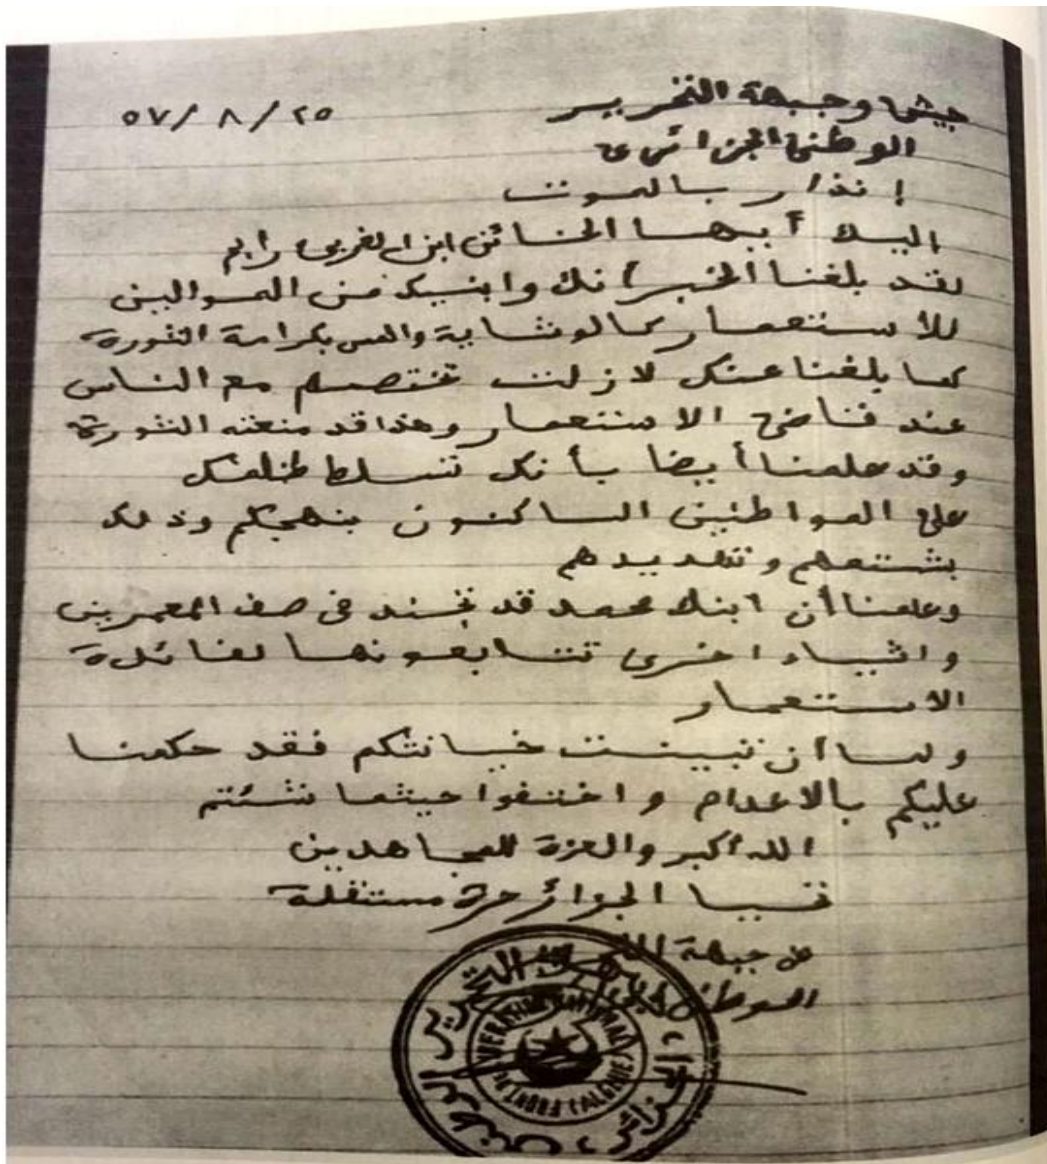 جيش وجبهة التحرير ٢٥ / ٨ / ٥٧
الوطني الجزائري
إنذار بالموت
إليك أيها الخائن ابن العربي رابح
لقد بلغنا الخبر أنك وابنيك من الموالين
للاستعمار كالوشاية والمس بكرامة الثورة
كما بلغنا عنك لازلت تختصم مع الناس
عند قاضي الاستعمار وهذا قد منعته الثورة
وقد علمنا أيضا بأنك تسلط ظلمك
على المواطنين الساكنون بنهجكم وذلك
بشتمهم وتهديدهم
وعلمنا أن ابنك محمد قد تجند في صف المعمرين
واشياء اخرى تتابعونها لفائدة
الاستعمار
ولما أن تبينت خيانتكم فقد حكمنا
عليكم بالاعدام واختفوا حيثما شئتم
الله أكبر والعزة للمجاهدين
تحيا الجزائر حرة مستقلة
عن جبهة
الوطني
جبهة التحرير الوطني الجزائري
LIBERATION NATIONALE
FRONT (ALGERIE)